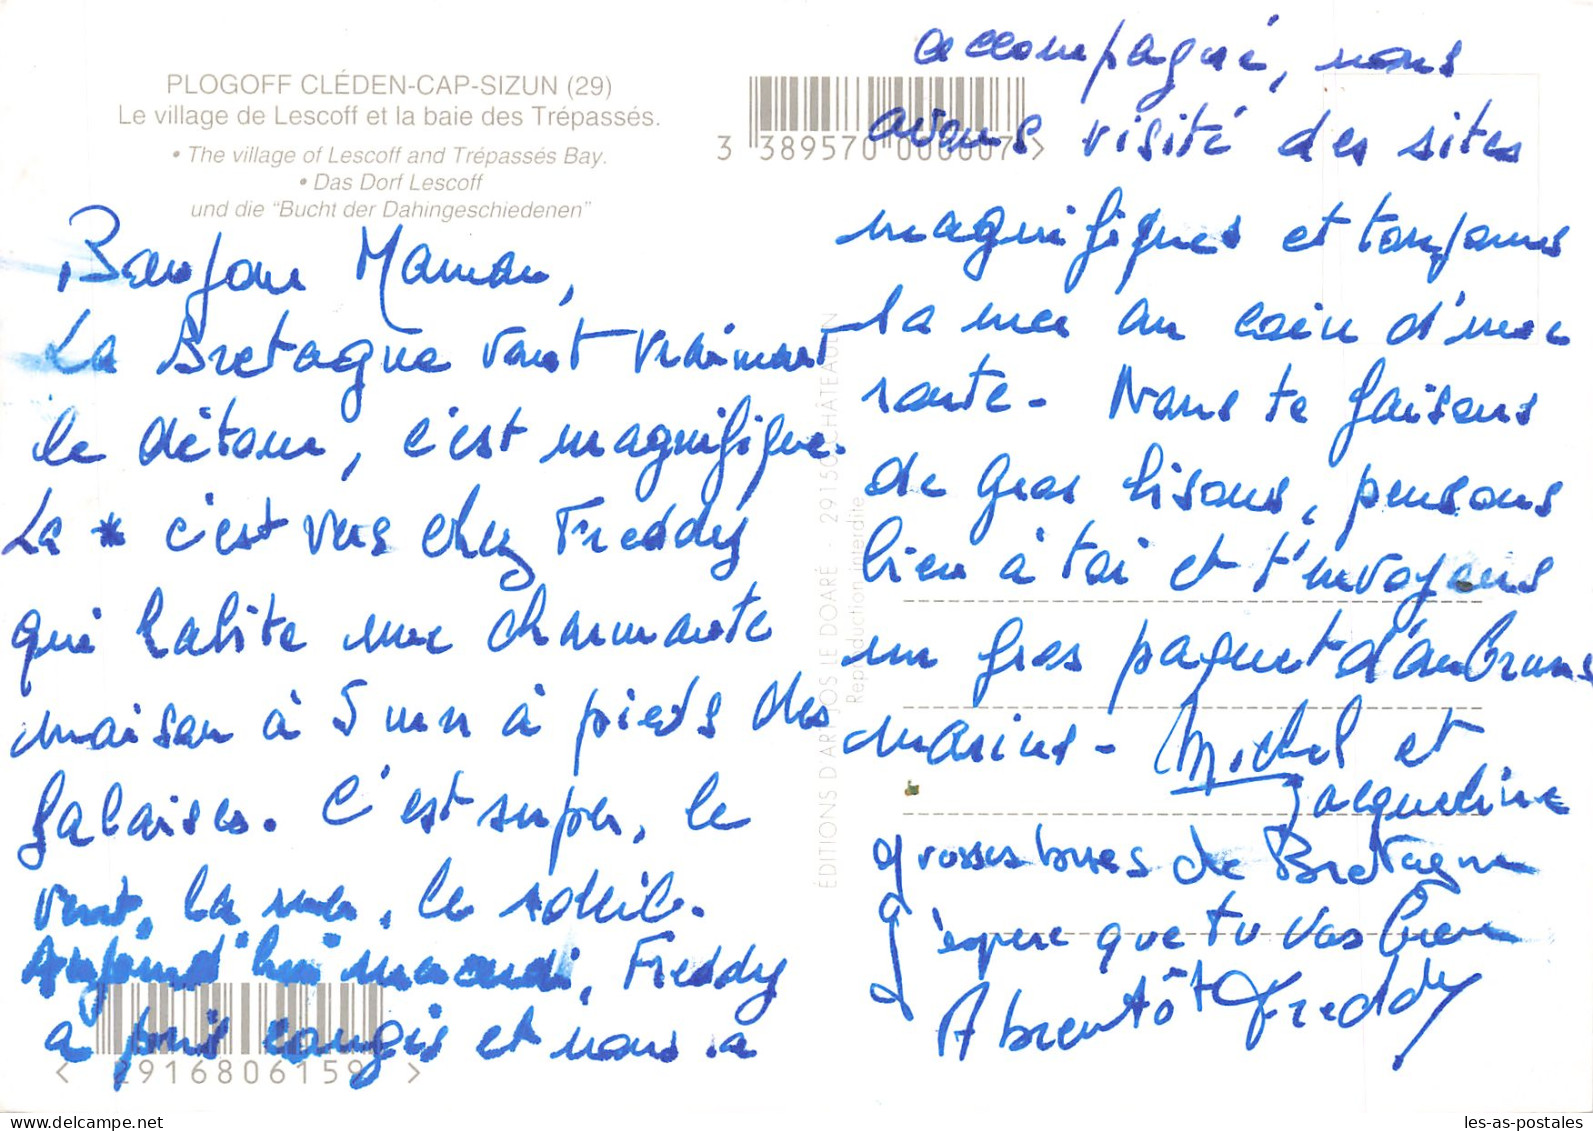 PLOGOFF CLÉDEN-CAP-SIZUN (29)
Le village de Lescoff et la baie des Trépassés.
• The village of Lescoff and Trépassés Bay.
• Das Dorf Lescoff
und die "Bucht der Dahingeschiedenen"
Bonjour Maman,
La Bretagne vaut vraiment
le détour, c'est magnifique.
La * c'est vue chez Freddy
qui habite une charmante
maison à 5 mn à pieds des
falaises. C'est super, le
vent, la mer, le soleil.
Aujourd'hui mercredi, Freddy
a pris congés et nous a
accompagné, nous
avons visité des sites
magnifiques et toujours
la mer au coin d'une
route - Nous te faisons
de gros bisous, pensons
bien à toi et t'envoyons
un gros paquet d'embruns
marins - Michel et
Jacqueline
grosses bises de Bretagne
J'espere que tu vas bien
A bientôt Freddy
3 389570 000007 >
< 2916806159 >
ÉDITIONS D'ART JOS LE DOARÉ - 29150 CHÂTEAULIN
Reproduction interdite
les-as-postales